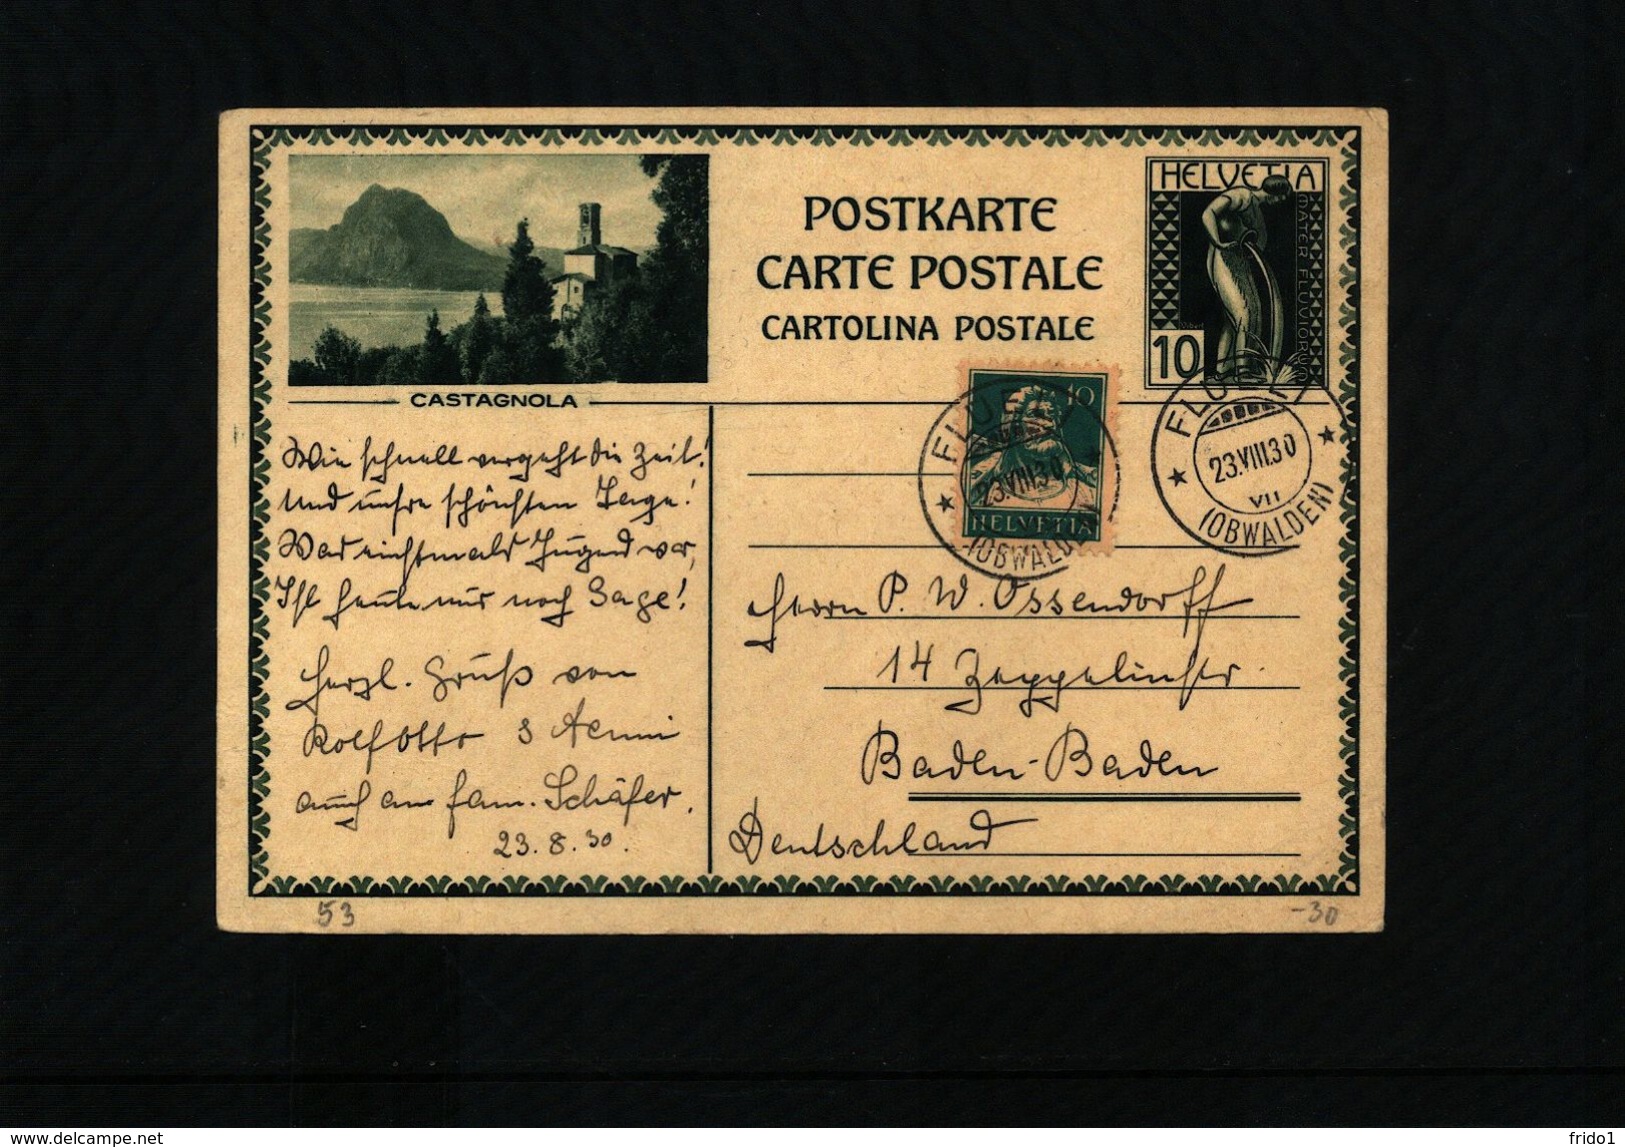 HELVETIA
MATER FLUVIORUM
10
POSTKARTE
CARTE POSTALE
CARTOLINA POSTALE
CASTAGNOLA
10
HELVETIA
FLÜELI
23.VIII.30
(OBWALDEN)
FLÜELI
23.VIII.30
VII
(OBWALDEN)
Wie schnell vergeht die Zeit!
Und unsre schönsten Tage!
War einstmals Jugend vor,
Ist heute nur noch Sage!
Herzl. Gruß von
Rolf Otto
auch an Fam. Schäfer.
23.8.30.
Herrn P. W. Ossendorff
14 Zeppelinstr.
Baden-Baden
Deutschland
53
-30
www.delcampe.net
frido1